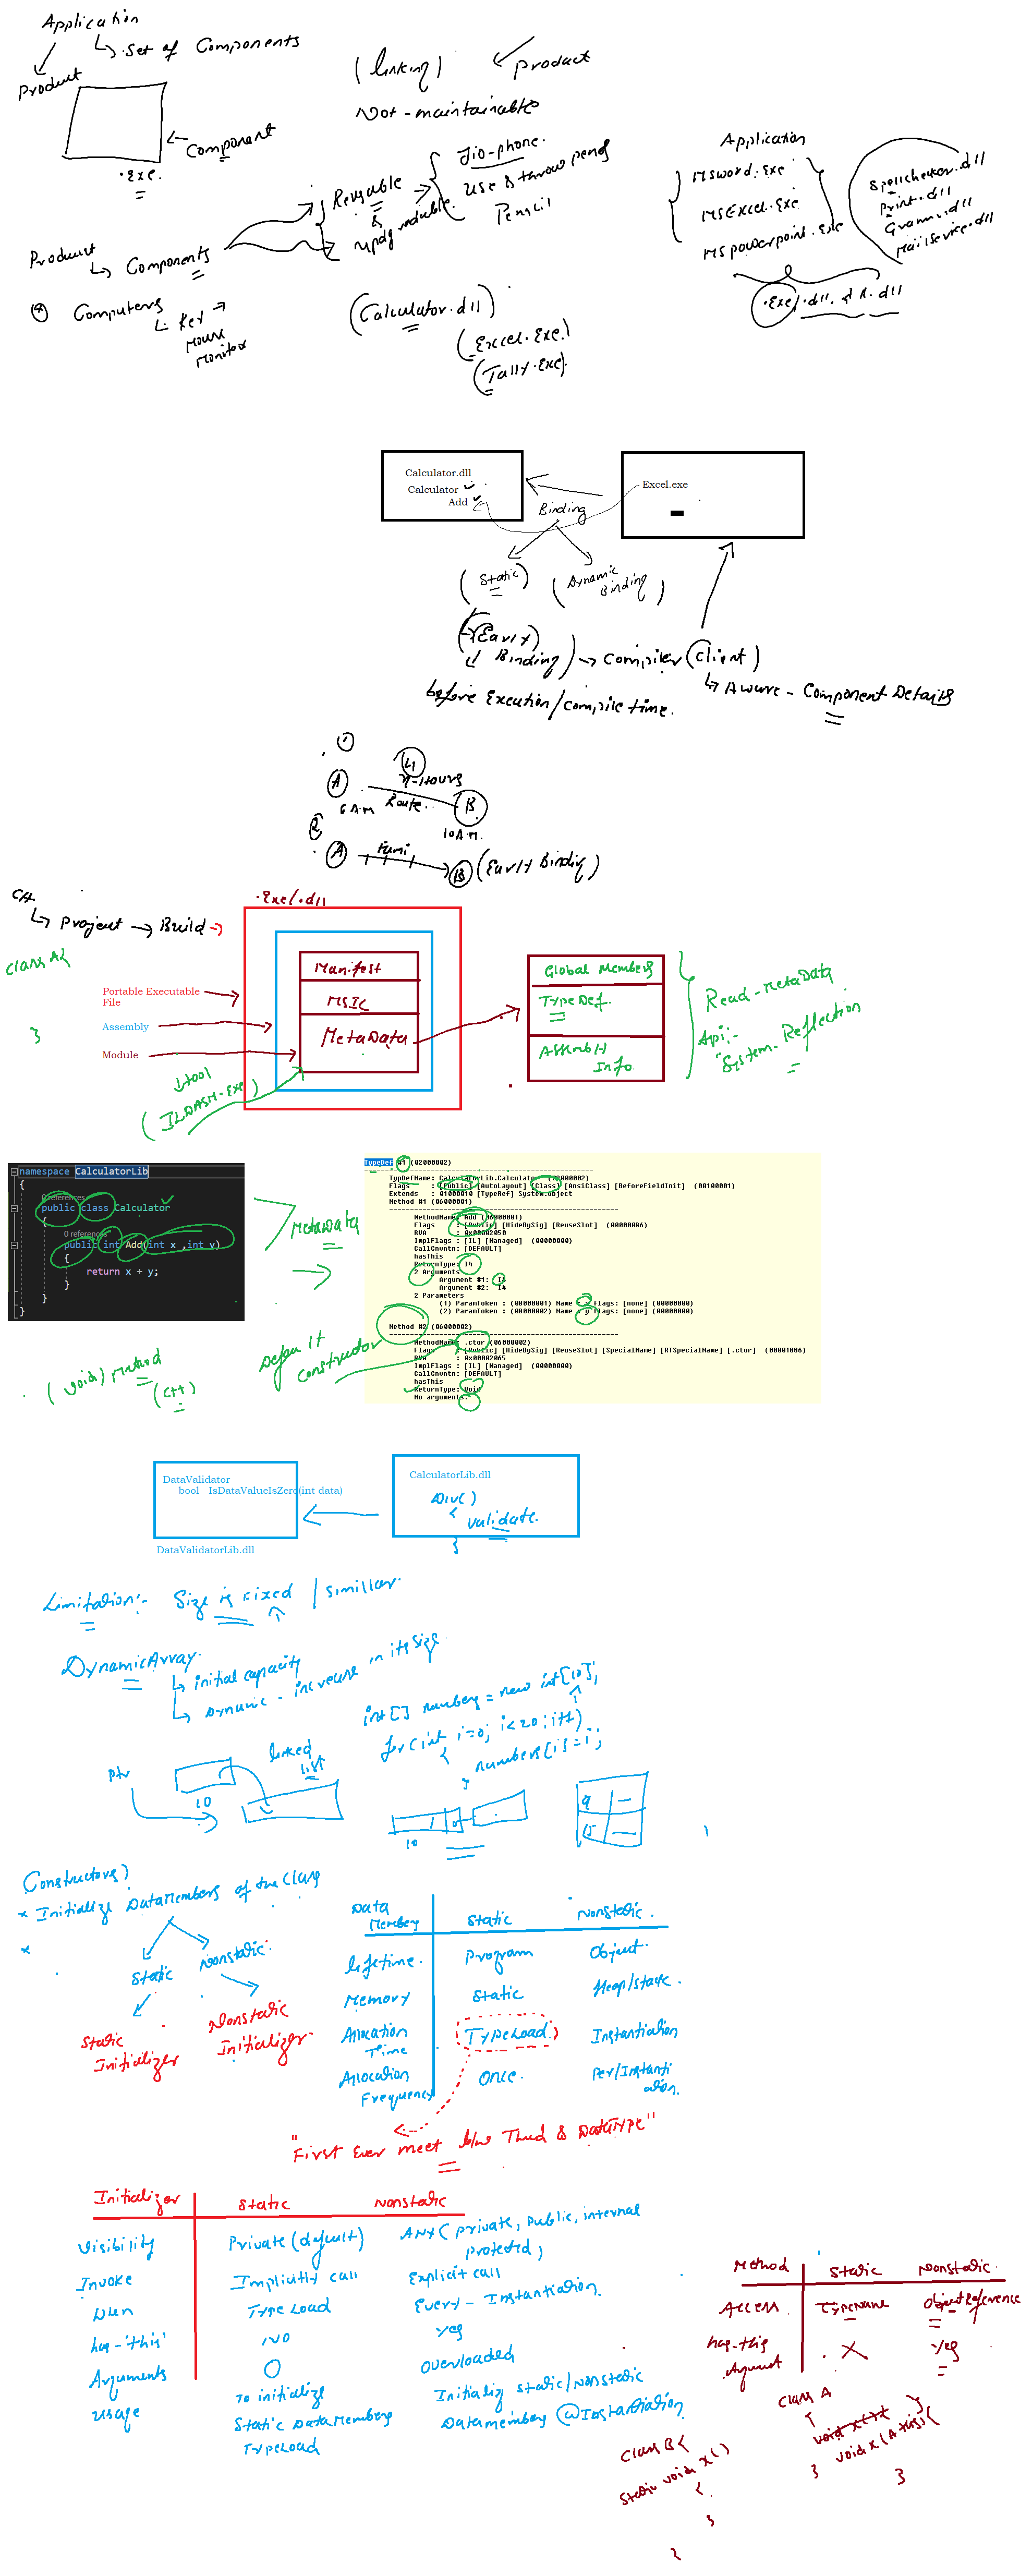 Application
↳ Set of Components
Product
Component
.Exe.
(linking)
Product
Not-maintainable
Product
↳ Components
Reusable
&
Upgradable.
Jio-phone.
Use & throw pens
Pencil
Computers
Key
Mouse
Monitor
(Calculator.dll)
(Excel.Exe)
(Tally.Exe)
Application
MSword.Exe
MSExcel.Exe
MSpowerpoint.Exe
Spellchecker.dll
Print.dll
Gramm.dll
Mailservice.dll
.Exe/.dll
.dll
Calculator.dll
Calculator
Add
Excel.exe
Binding
(Static)
(Dynamic Binding)
(Early Binding) → Compiler (Client)
↳ Aware - Component Details
before Execution/compile time.
1
4
A
Hours
B
6 A.M
Route..
10 A.M.
2
A
B
(Early Binding)
C#
↳ Project → Build →
.Exe/.dll
class A{
}
Portable Executable
File
Assembly
Module
Manifest
MSIL
MetaData
Global Members
TypeDef.
Assembly
Info.
Read-MetaData
Api:-
"System.Reflection
↓tool
(ILDASM.Exe)
namespace CalculatorLib
{
0 references
public class Calculator
{
0 references
public int Add(int x ,int y)
{
return x + y;
}
}
}
MetaData
TypeDef #1 (02000002)
TypDefName: CalculatorLib.Calculator (02000002)
Flags : [Public] [AutoLayout] [Class] [AnsiClass] [BeforeFieldInit] (00100001)
Extends : 01000010 [TypeRef] System.Object
Method #1 (06000001)
MethodName: Add (06000001)
Flags : [Public] [HideBySig] [ReuseSlot] (00000086)
RVA : 0x00002050
ImplFlags : [IL] [Managed] (00000000)
CallCnvntn: [DEFAULT]
hasThis
ReturnType: I4
2 Arguments
Argument #1: I4
Argument #2: I4
2 Parameters
(1) ParamToken : (08000001) Name : x flags: [none] (00000000)
(2) ParamToken : (08000002) Name : y flags: [none] (00000000)
Method #2 (06000002)
MethodName: .ctor (06000002)
Flags : [Public] [HideBySig] [ReuseSlot] [SpecialName] [RTSpecialName] [.ctor] (00001886)
RVA : 0x00002065
ImplFlags : [IL] [Managed] (00000000)
CallCnvntn: [DEFAULT]
hasThis
ReturnType: Void
No arguments.
Default
Constructor
(void) method
(C++)
DataValidator
bool IsDataValueIsZero(int data)
DataValidatorLib.dll
CalculatorLib.dll
Div()
{
validate.
}
Limitation:- Size is Fixed / Simillar.
DynamicArray.
↳ initial capacity
↳ Dynamic - increase in its size.
int[] numbers = new int[10];
for(int i=0; i<20; i++)
{
numbers[i]=i;
}
ptr
10
linked
list
10
9
15
Constructors)
* Initialize DataMembers of the Class
*
Static
Nonstatic.
Static
Initializer
Nonstatic
Initializer.
Data
Members
Static
Nonstatic.
Lifetime.
Program
Object.
Memory
Static
Heap/stack.
Allocation
Time
TypeLoad
Instantiation
Allocation
Frequency
Once.
Per/Instantiation.
"First Ever meet b/w Thread & DataType"
Initializer
Static
Nonstatic
Visibility
Private (default)
ANY (private, public, internal
protected,
Invoke
Implicitly call
Explicit call
When
Type Load
Every - Instantiation.
has-'this'
NO
yes
Arguments
0
Overloaded
Usage
To initialize
Static DataMembers
TypeLoad
Initialize static/nonstatic
Datamembers @Instantiation
Method
Static
Nonstatic.
Access.
TypeName
ObjectReference
has-this
Argument
X
yes
Class A
{
void x(){
}
void x(A this){
}
}
Class B{
Static void x()
{
}
}